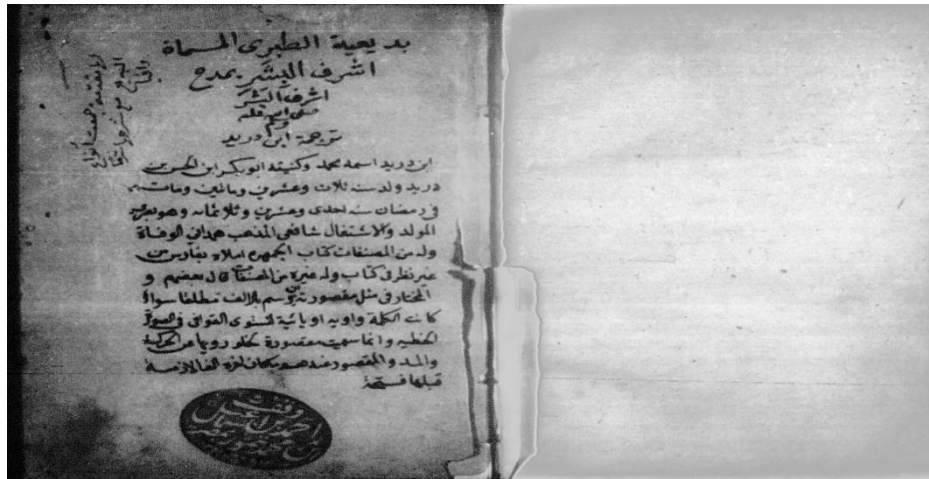 بديعية الطبرى المسماة
اشرف البشر بمدح
اشرف البشر
صلى الله عليه
وسلم
ترجمة ابن دريد
ابن دريد اسمه محمد وكنيته ابو بكر ابن الحسن بن
دريد ولد سنه ثلاث وعشرين ومائتين ومات
فى رمضان سنه احدى وعشرين وثلاثمائه وهو بصرى
المولد والاشتغال شافعى المذهب همدانى الوفاة
وله من المصنفات كتاب الجمهره املاه بفارس من
غير نظر فى كتاب وله غيره من المصنفات قال بعضهم و
المختار فى مثل مقصورته ان ترسم بالالف مطلقا سواء
كانت الكلمة واويه او يائية لتستوى القوافى فى الصورة
الخطيه وانما سميت مقصورة لخلو رويها عن الحركة
والمد والمقصور عندهم ما كان اخره الفا لازمة
قبلها فتحة